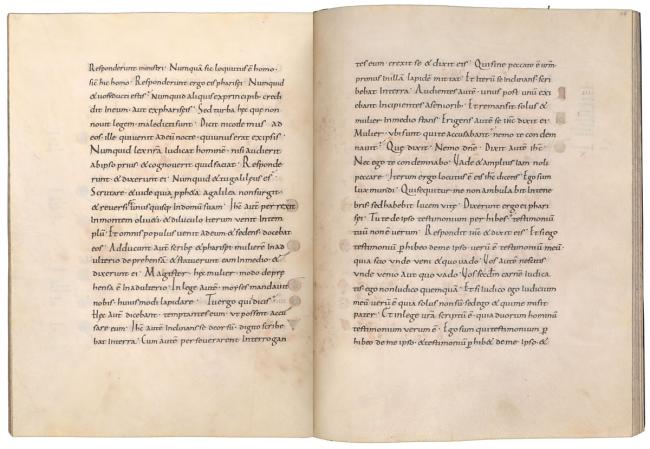 Responderunt ministri · Numquā sic locutus ē homo ·
sic hic homo · Responderunt ergo eis pharisei · Numquid
& vos seducti estis · Numquid aliquis ex principib; credi
dit in eum · aut ex phariseis · Sed turba hęc que non
novit legem · maledicti sunt · Dicit nicodemus ad
eos · ille qui venit ad eū nocte · qui unus erat ex ipsis ·
Numquid lex nr̄a iudicat hominē · nisi audierit
ab ipso prius · & cognoverit quid faciat · Responde
runt · & dixerunt ei · Numquid & tu galileus es ·
Scrutare · & vide quia ppheta a galilea non surgit ·
& reversi st̄ unusquisq; in domum suam · Ihc̄ autē perrexit
in montem oliveti · & diluculo iterum venit in tem
plū · Et omnis populus venit ad eum · & sedens docebat
eos · Adducunt autē scribe & pharisei · mulierē in ad
ulterio deprehensā · & statuerunt eam in medio · &
dixerunt ei · Magister · hęc mulier · modo depre
hensa ē in adulterio · In lege autē · moyses mandavit
nobis · huius modi lapidare · Tu ergo quid dicis ·
Hęc autē dicebant · temptantes eum · ut possent accu
sare eum · Ihc̄ autē inclinans se deorsū · digito scribe
bat in terra · Cum autē perseverarent interrogan
tes eum · erexit se · & dixit eis · Qui sine peccato ē vr̄m ·
primus in illā lapidē mittat · Et iterū se inclinans · scri
bebat in terra · Audientes autē · unus post unū exi
ebant · incipientes a seniorib; · Et remansit solus · &
mulier in medio stans · Erigens autē se ihc̄ · dixit ei ·
Mulier · ubi sunt qui te accusabant · nemo te condem
navit · Quę dixit · Nemo dn̄e · Dixit autē ihc̄ ·
Nec ego te condemnabo · Vade · & amplius iam noli
peccare · Iterum ergo locutus ē eis ihc̄ dicens · Ego sum
lux mundi · Qui sequitur me · non ambulabit in tene
bris · sed habebit lucem vitę · Dixerunt ergo ei phari
sei · Tu te do ipso testimonium perhibes · testimoniū
tuū non ē verum · Respondit ihc̄ · & dixit eis · Et si ego
testimoniū phibeo de me ipso · verū ē testimoniū meū ·
quia scio unde veni & quo vado · Vos autē nescitis
unde venio aut quo vado · Vos scdm̄ carnē iudica
tis · ego non iudico quemquā · Et si iudico ego · iudicium
meū verū ē · quia solus non sū · sed ego & qui me misit
pater · Et in lege vr̄a scriptū ē · quia duorum hominū
testimonium verum ē · Ego sum qui testimonium p
hibeo de me ipso · & testimoniū phib& de me ipso · &